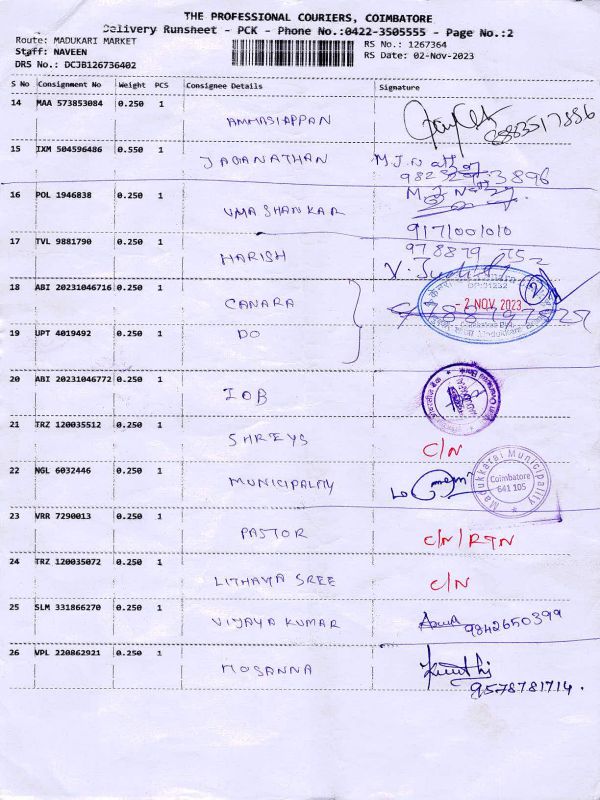 THE PROFESSIONAL COURIERS, COIMBATORE
Delivery Runsheet - PCK - Phone No.:0422-3505555 - Page No.:2
Route: MADUKARI MARKET
RS No.: 1267364
Staff: NAVEEN
RS Date: 02-Nov-2023
DRS No.: DCJB126736402
S No Consignment No Weight PCS Consignee Details Signature
14 MAA 573853084 0.250 1
AMMASIAPPAN
15 IXM 504596486 0.550 1
JAGANATHAN
16 POL 1946038 0.250 1
UMA SHANKAR
9171001010
17 TVL 9881790 0.250 1
HARISH
18 ABI 20231046716 0.250 1
CANARA
- 2 NOV 2023
19 UPT 4019492 0.250 1
DO
20 ABI 20231046772 0.250 1
IOB
21 TRZ 120035512 0.250 1
SHREYS
C/N
22 NGL 6032446 0.250 1
MUNICIPALITY
Madukkarai Municipality
Coimbatore
641 105
23 VRR 7290013 0.250 1
PASTOR
C/N/RTN
24 TRZ 120035072 0.250 1
LITHAYA SREE
C/N
25 SLM 331866270 0.250 1
VIJAYA KUMAR
9842650399
26 VPL 220862921 0.250 1
HOSANNA
9578781714.